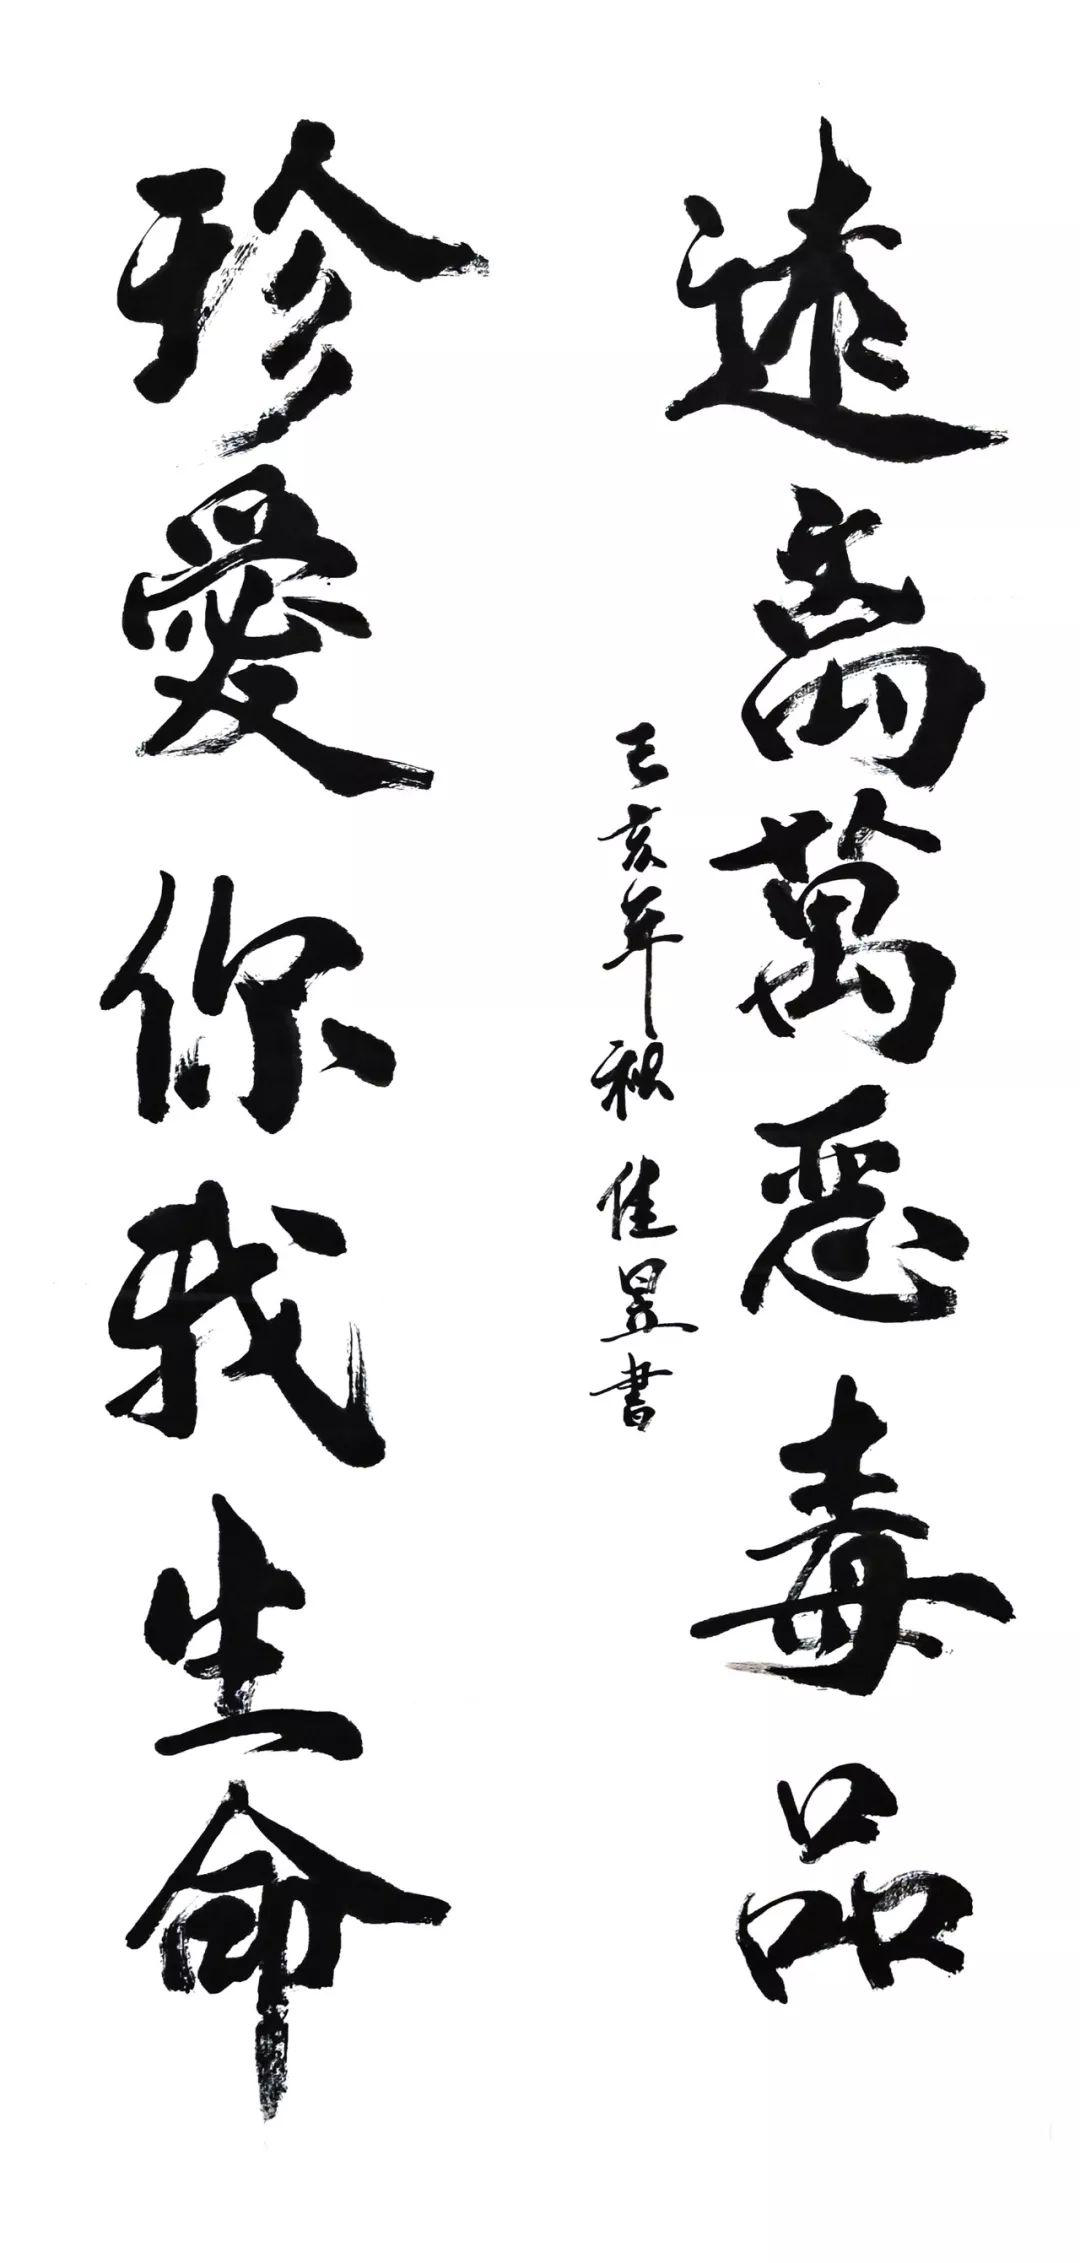 遠离萬惡毒品
己亥年秋佳昱書
珍愛你我生命